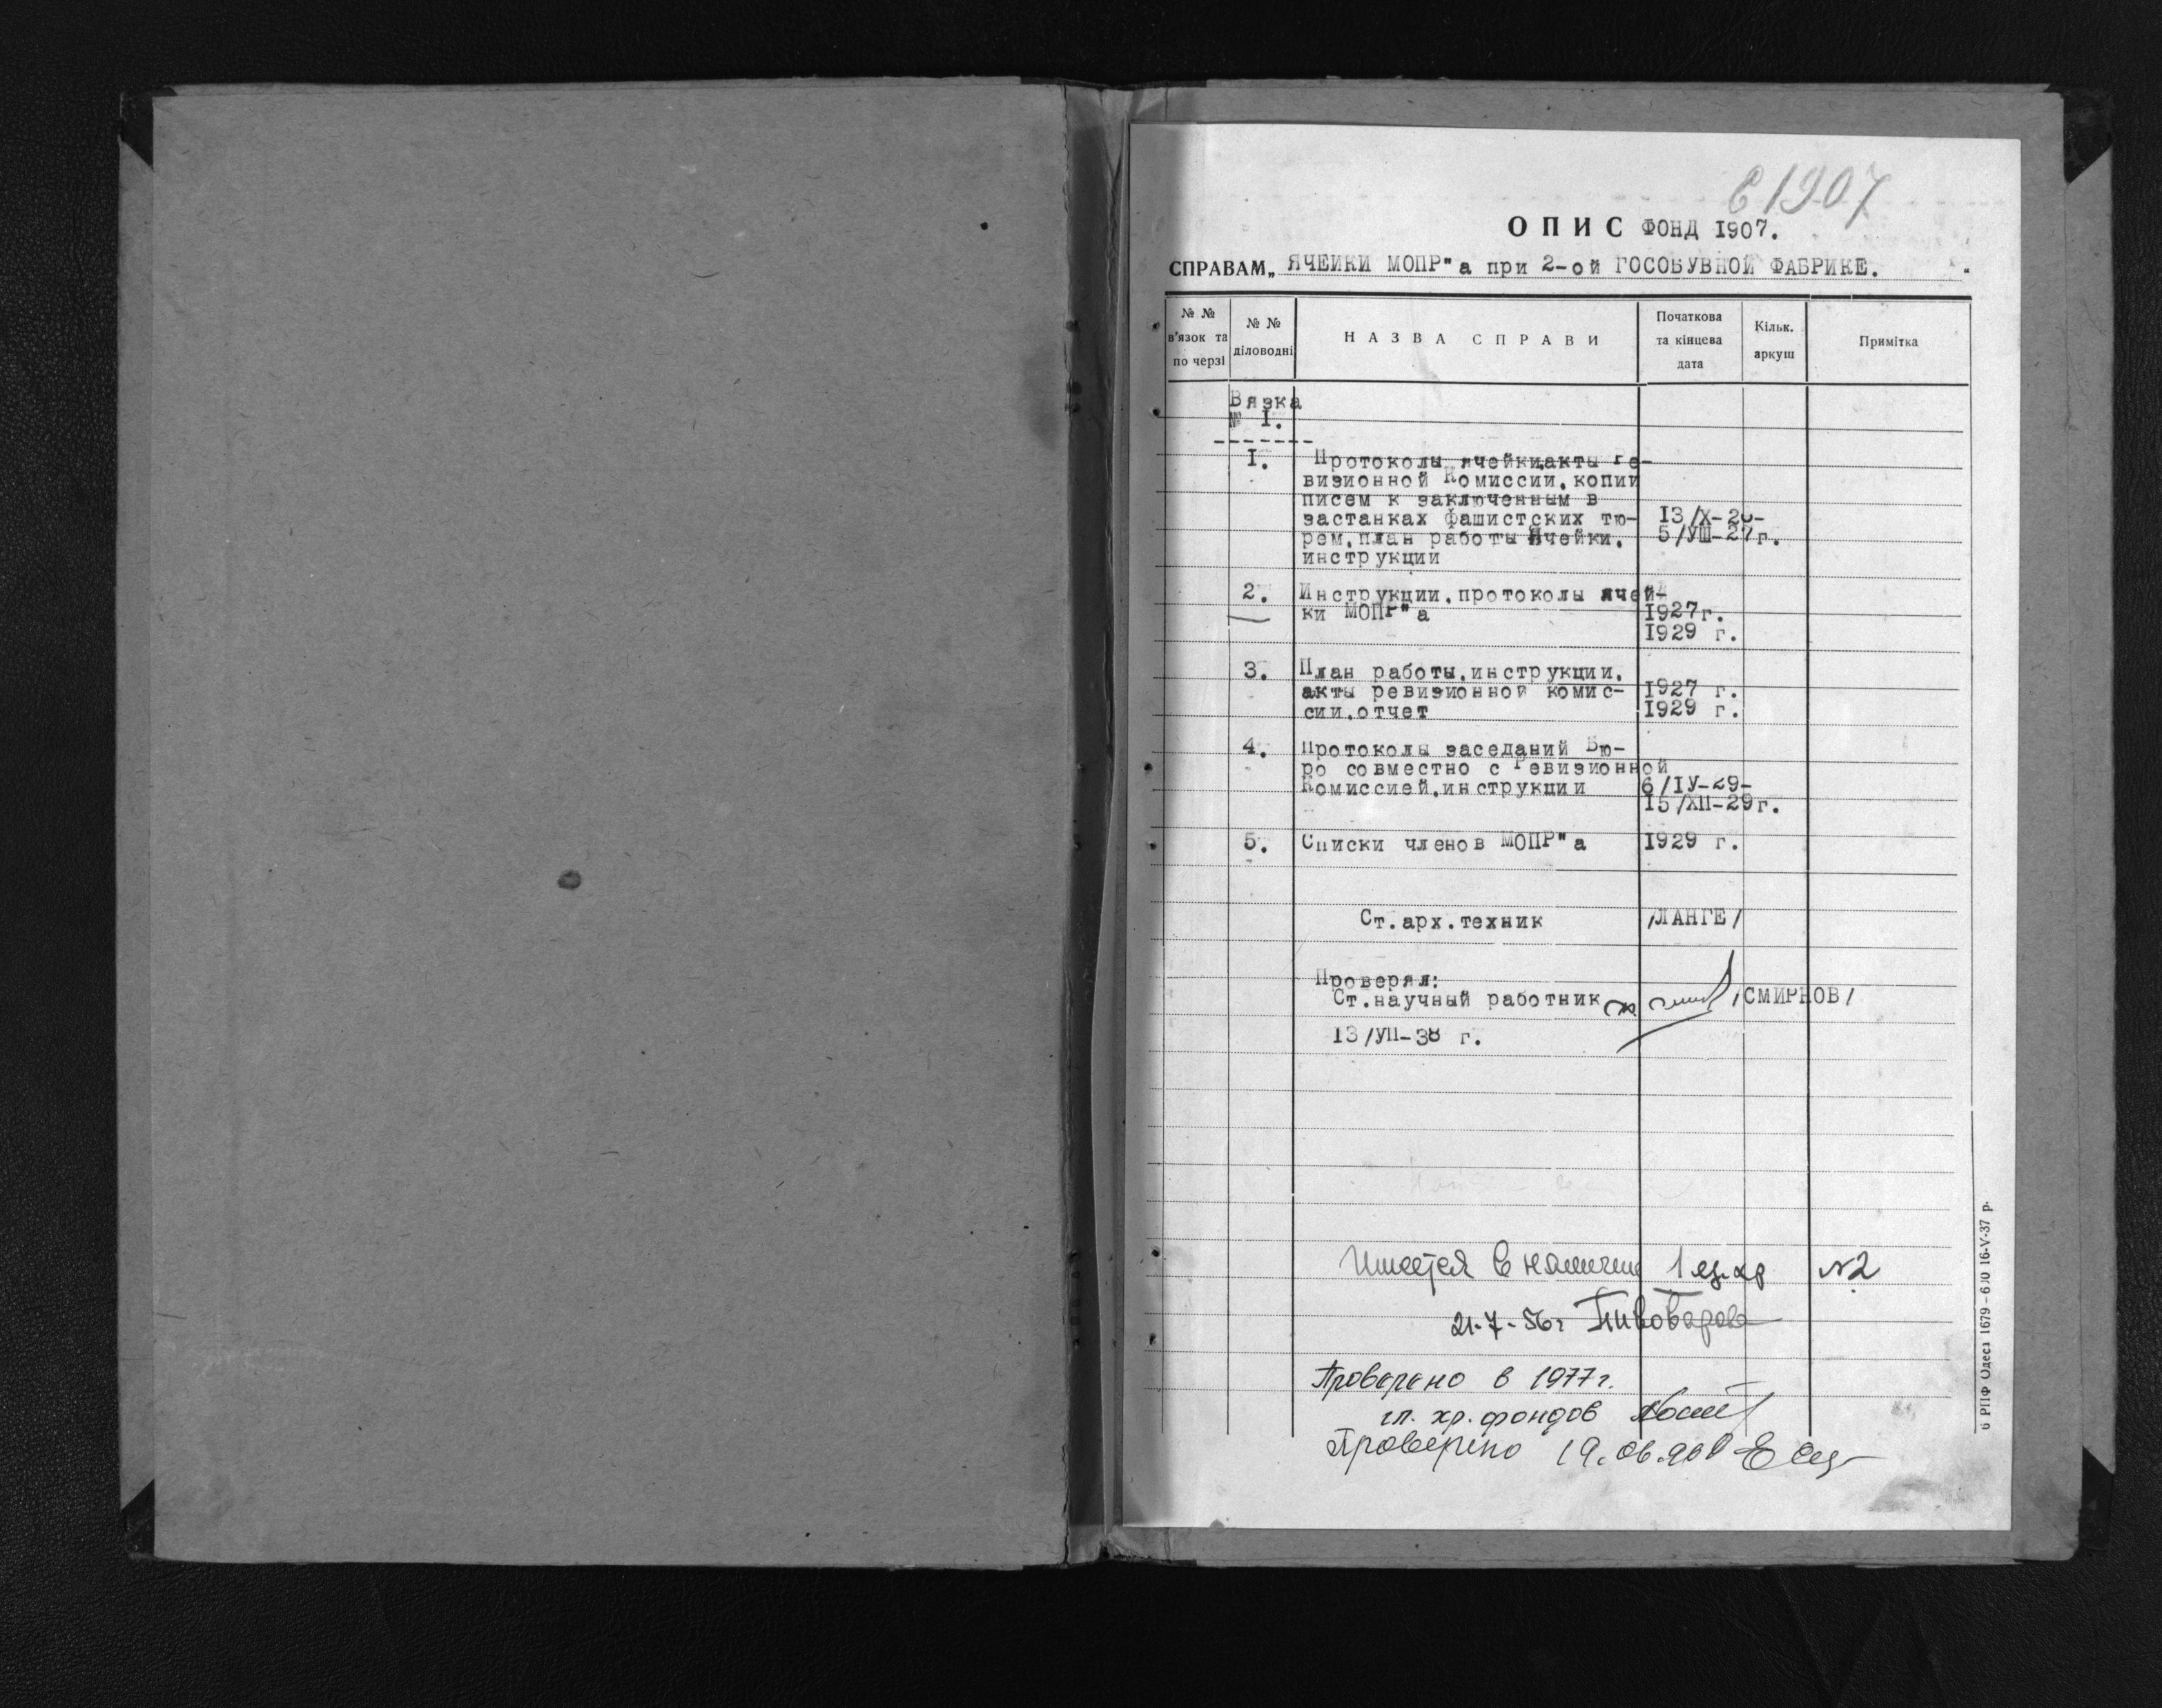 1907
ОПИС ФОНД 1907.
СПРАВАМ „ ЯЧЕЙКИ МОПР"а при 2-ой ГОСОБУВНОЙ ФАБРИКЕ.
№ № в'язок та по черзі
№ № діловодні
НАЗВА СПРАВИ
Початкова та кінцева дата
Кільк. аркуш
Примітка
Вязка
№ I.
I. Протоколы ячейки,акты ре-
визионной Комиссии,копии
писем к заключенным в
застанках фашистских тю- 13/X-26-
рем,план работы Ячейки, 5/УШ-27г.
инструкции
2. Инструкции,протоколы ячей-
ки МОПР"а 1927г.
1929 г.
3. План работы,инструкции,
акты ревизионной комис- 1927 г.
сии,отчет 1929 г.
4. Протоколы заседаний Бю-
ро совместно с Ревизионной
Комиссией,инструкции 6/IУ-29-
15/ХП-29г.
5. Списки членов МОПР"а 1929 г.
Ст.арх.техник /ЛАНГЕ/
Проверял:
Ст.научный работник /СМИРНОВ/
13/УП-38 г.
Имеется в наличии 1 ед.хр №2
21-7-56г Пивоварова
Проверено в 1977г.
гл. хр. фондов
Проверено 19.06.90
6 РПФ Одеса 1679-600 16-V-37 р.